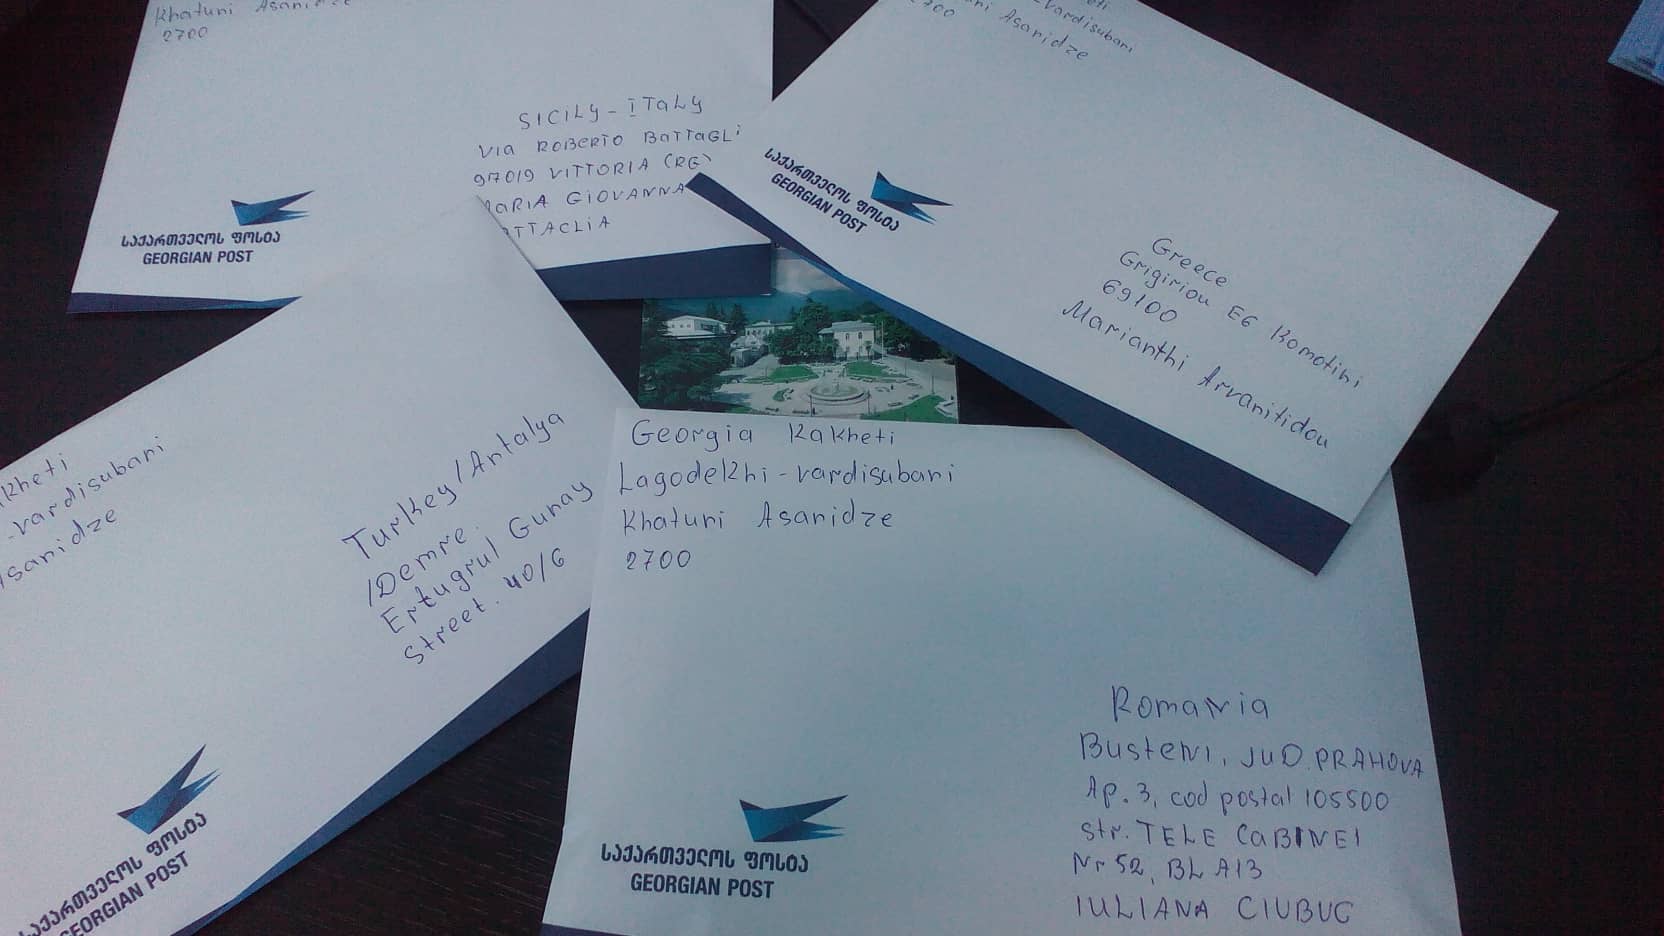 Khatuni
2700
SICILY - ITALY
Via ROBERTO BATTAGLi
97019 VITTORIA (RG)
MARIA GIOVANNA
საქართველოს ფოსტა
GEORGIAN POST
vardisubani
Asanidze
2700
საქართველოს ფოსტა
GEORGIAN POST
Greece
Grigiriou E6 Komotini
69100
Marianthi Arvanitidou
-vardisubani
Turkey/Antalya
/Demre.
Ertugrul Gunay
Street. 40/6
საქართველოს ფოსტა
GEORGIAN POST
Georgia Kakheti
Lagodekhi-vardisubani
Khatuni Asanidze
2700
Romania
Busteni, JUD. PRAHOVA
Ap. 3, cod postal 105500
str. TELE CABINEI
Nr 52, BL A13
IULIANA CIUBUC
საქართველოს ფოსტა
GEORGIAN POST